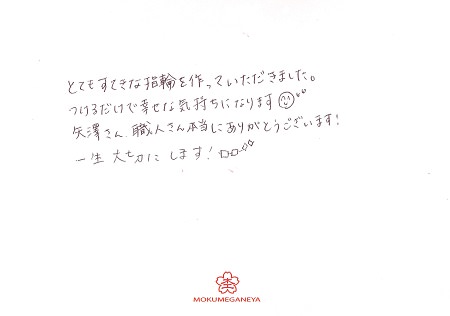 とてもすてきな指輪を作っていただきました。
つけるだけで幸せな気持ちになります
矢澤さん、職人さん本当にありがとうございます!
一生大切にします!
MOKUMEGANEYA